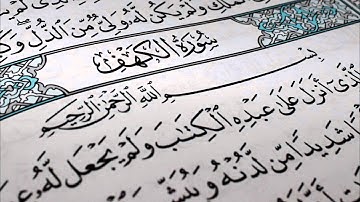 ٱلْمُلْكِ وَلَمْ يَكُن لَّهُۥ وَلِىٌّ مِّنَ ٱلذُّلِّ وَكَ
سُورَةُ الكَهْفِ
بِسْمِ اللَّهِ الرَّحْمَٰنِ الرَّحِيمِ
ٱلَّذِىٓ أَنزَلَ عَلَىٰ عَبْدِهِ ٱلْكِتَٰبَ وَلَمْ يَجْعَل لَّهُۥ عِوَ
شَدِيدًا مِّن لَّدُنْهُ وَيُبَشِّرَ